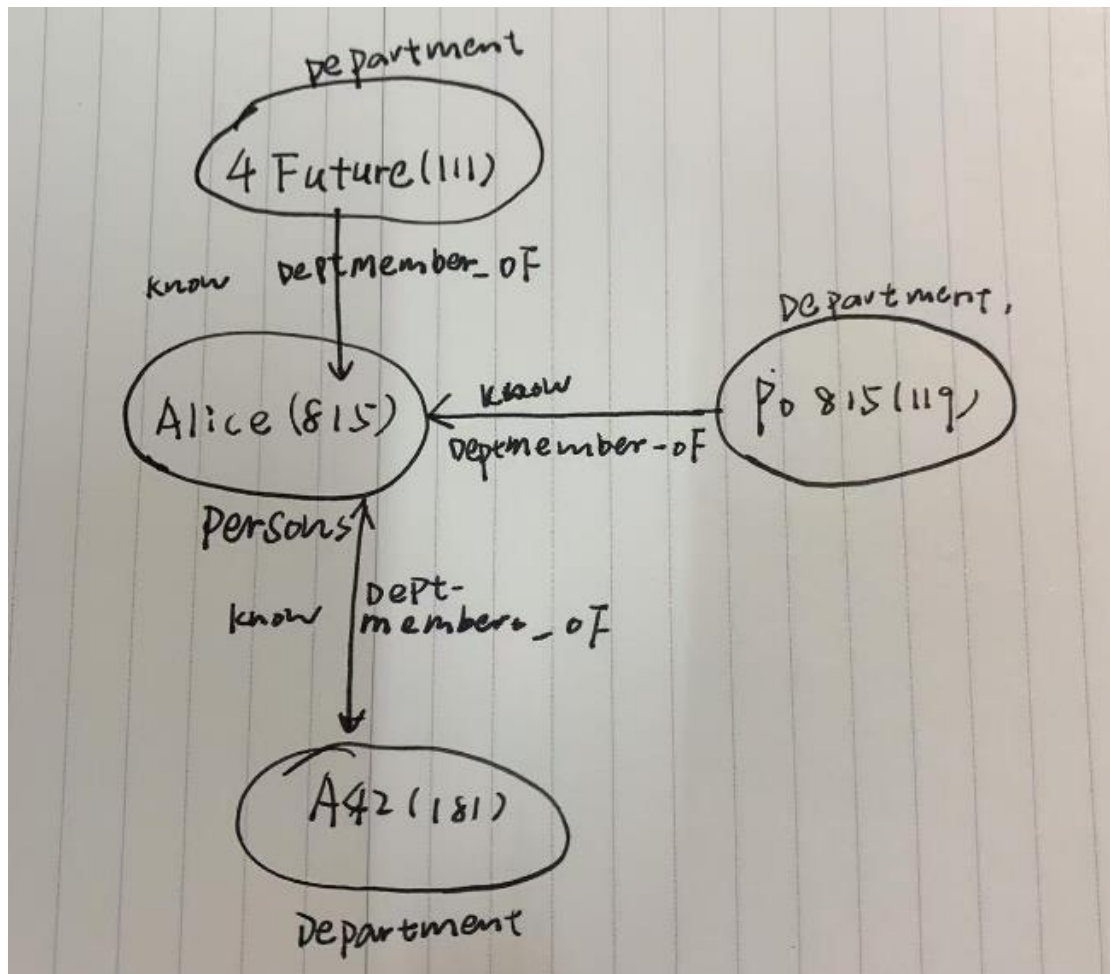 Department
4 Future(111)
know Deptmember_of
Department.
Alice (815)
know
Po 815(119)
Deptmember-of
Persons
know
Dept-
members_of
A42(181)
Department